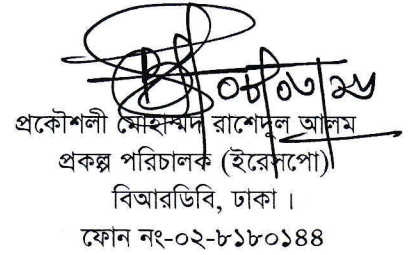 ০৮/০৩/২৮
প্রকৌশলী মোহাম্মদ রাশেদুল আলম
প্রকল্প পরিচালক (ইরেসপো)
বিআরডিবি, ঢাকা ।
ফোন নং-০২-৮১৮০১৪৪